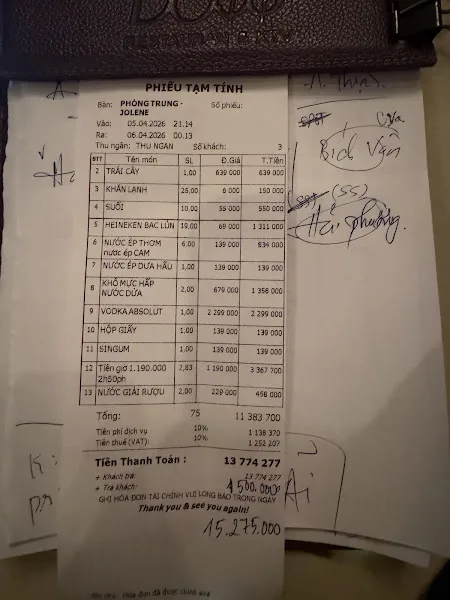 PHIẾU TẠM TÍNH
Bàn: PHÒNG TRUNG - JOLENE Số phiếu:
Vào: 05.04.2026 21.14
Ra: 06.04.2026 00.13
Thu ngân: THU NGAN Số khách: 3
STT Tên món SL Đ.Giá T.Tiền
2 TRÁI CÂY 1,00 639 000 639 000
3 KHĂN LẠNH 25,00 6 000 150 000
4 SUỐI 10,00 55 000 550 000
5 HEINEKEN BẠC LÙN 19,00 69 000 1 311 000
6 NƯỚC ÉP THƠM 6,00 139 000 834 000
nước ép CAM
7 NƯỚC ÉP DƯA HẤU 1,00 139 000 139 000
8 KHÔ MỰC HẤP 2,00 679 000 1 358 000
NƯỚC DỪA
9 VODKA ABSOLUT 1,00 2 299 000 2 299 000
10 HỘP GIẤY 1,00 139 000 139 000
11 SINGUM 1,00 139 000 139 000
12 Tiền giờ 1.190.000 2,83 1 190 000 3 367 700
2h50ph
13 NƯỚC GIẢI RƯỢU 2,00 229 000 458 000
Tổng: 75 11 383 700
Tiền phí dịch vụ 10% 1 138 370
Tiền thuế (VAT): 10% 1 252 207
Tiền Thanh Toán : 13 774 277
+ Khách trả: 13 774 277
+ Trả khách:
GHI HÓA ĐƠN TÀI CHÍNH VUI LÒNG BÁO TRONG NGÀY
Thank you & see you again!
15.275.000
Bích Vân
(SS)
Hải phường.
K:
Ai